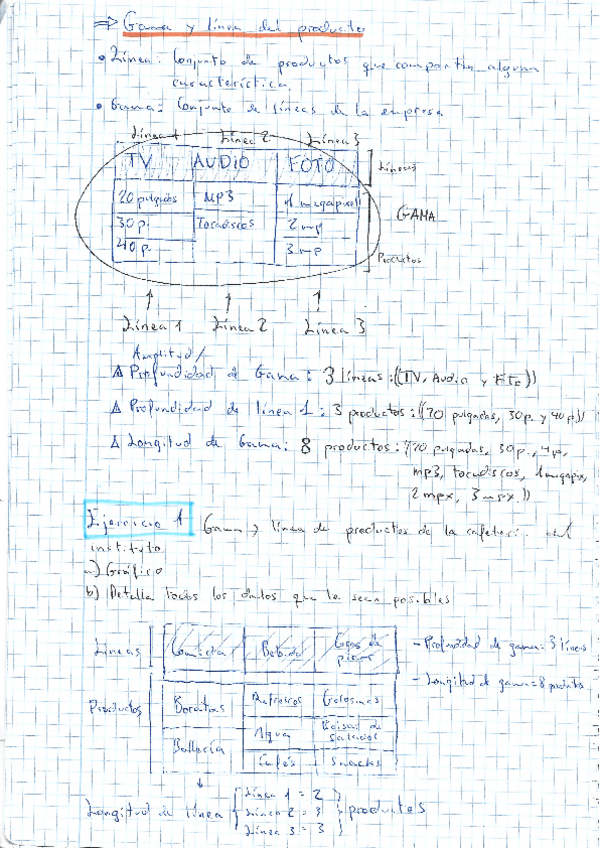 ⇒ Gama y línea del producto
• Línea: Conjunto de productos que comparten alguna
característica.
• Gama: Conjunto de líneas de la empresa
Línea 1 Línea 2 Línea 3
TV AUDIO FOTO Líneas
20 pulgadas MP3 1 megapixel
30 p. Tocadiscos 2 mp GAMA
40 p. 3 mp
Productos
Línea 1 Línea 2 Línea 3
Amplitud/
Δ Profundidad de Gama: 3 líneas: ((TV, Audio y Foto))
Δ Profundidad de línea 1: 3 productos: ((20 pulgadas, 30 p. y 40 p.))
Δ Longitud de Gama: 8 productos: ((20 pulgadas, 30 p.,
mp3, tocadiscos, 1 megapix,
2 mpx, 3 mpx.))
Ejercicio 1 Gama y línea de productos de la
instituto
a) Gráfico
b) Detalla todos los datos que te sean posibles
Líneas Comida Bebida Cosas de
picar
- Profundidad de gama: 3 líneas
- Longitud de gama = 8 productos
Productos Refrescos Golosinas
Agua Bolsas de
Bollería Cafés Snacks
Longitud de línea Línea 1 = 2
Línea 2 = 3 productos
Línea 3 = 3